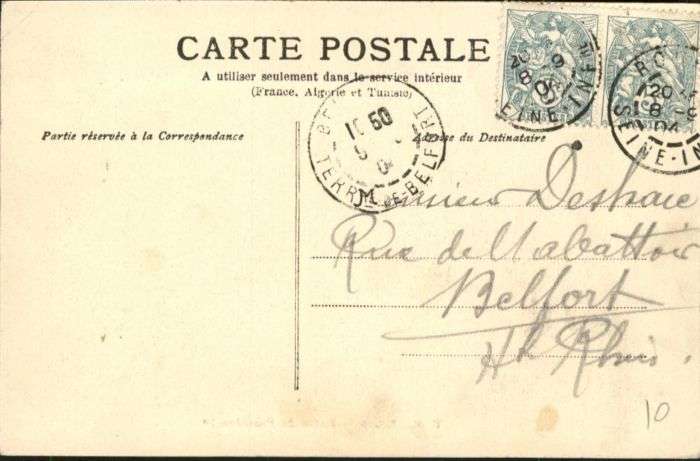 CARTE POSTALE
A utiliser seulement dans le service intérieur
(France, Algérie et Tunisie)
Partie réservée à la Correspondance
Adresse du Destinataire
10 50
TERRRE DE BELFORT
20
8
SEINE-IN
20
8
SEINE-IN
Monsieur Deshaie
Rue de l'abattoir
Belfort
Ht Rhin
10